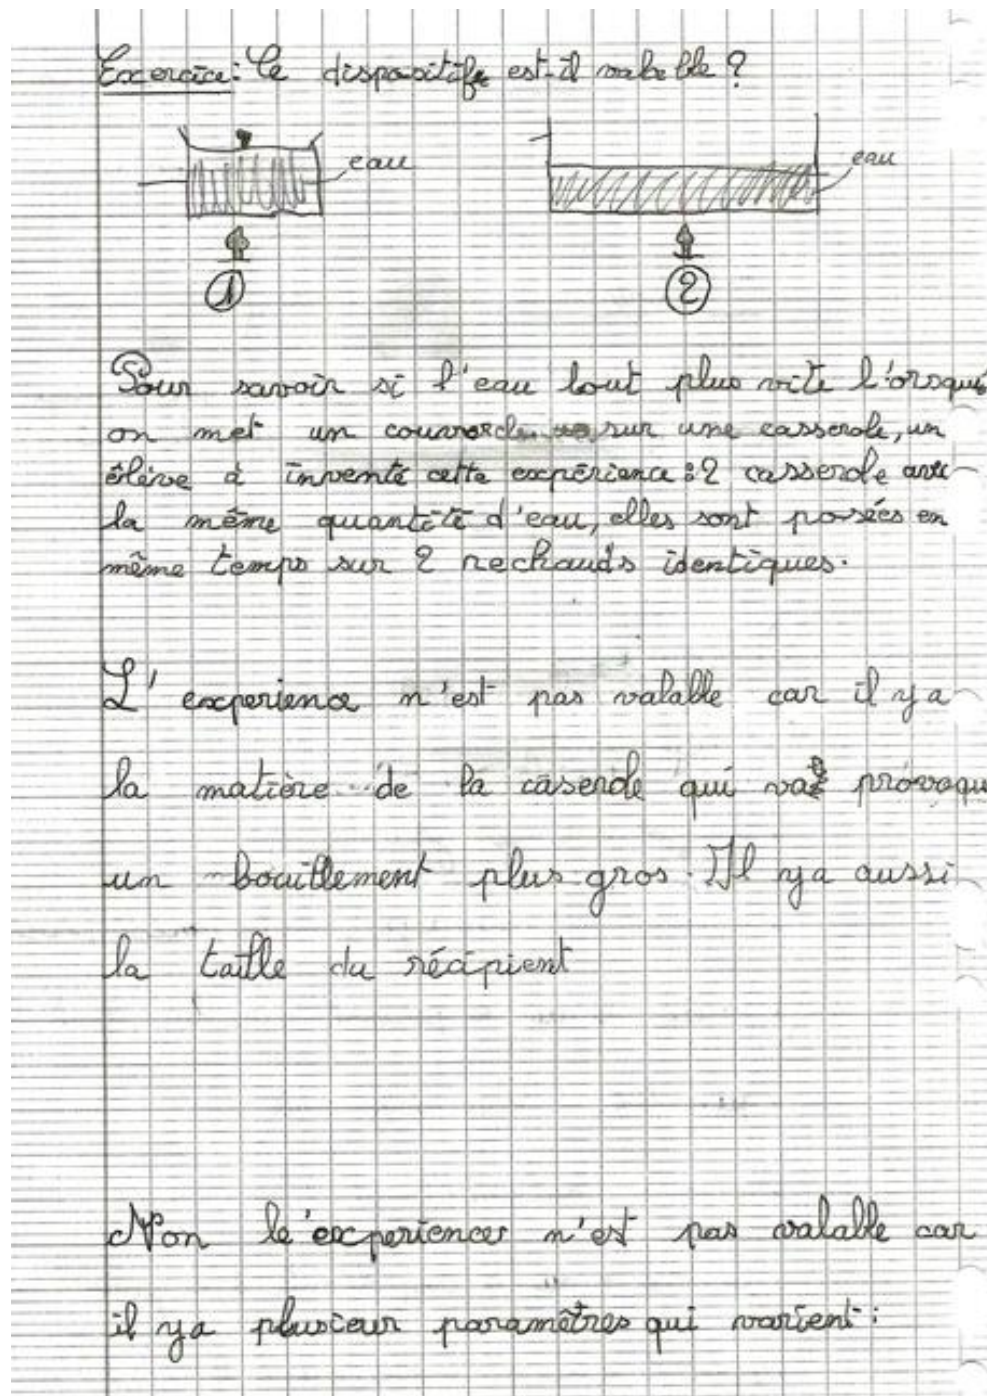 Excercice: Ce dispositife est-il valable ?
eau
eau
1
2
Pour savoir si l'eau bout plus vite l'orsque
on met un couvercle sur une casserole, un
élève à inventé cette expérience : 2 casserole avec
la même quantité d'eau, elles sont posées en
même temps sur 2 rechauds identiques.
L'experience n'est pas valable car il y a
la matière de la caserole qui va provoqu
un bouillement plus gros. Il y a aussi
la taille du récipient
Non le'experiences n'est pas valable car
il y a plusieur paramètres qui varient :